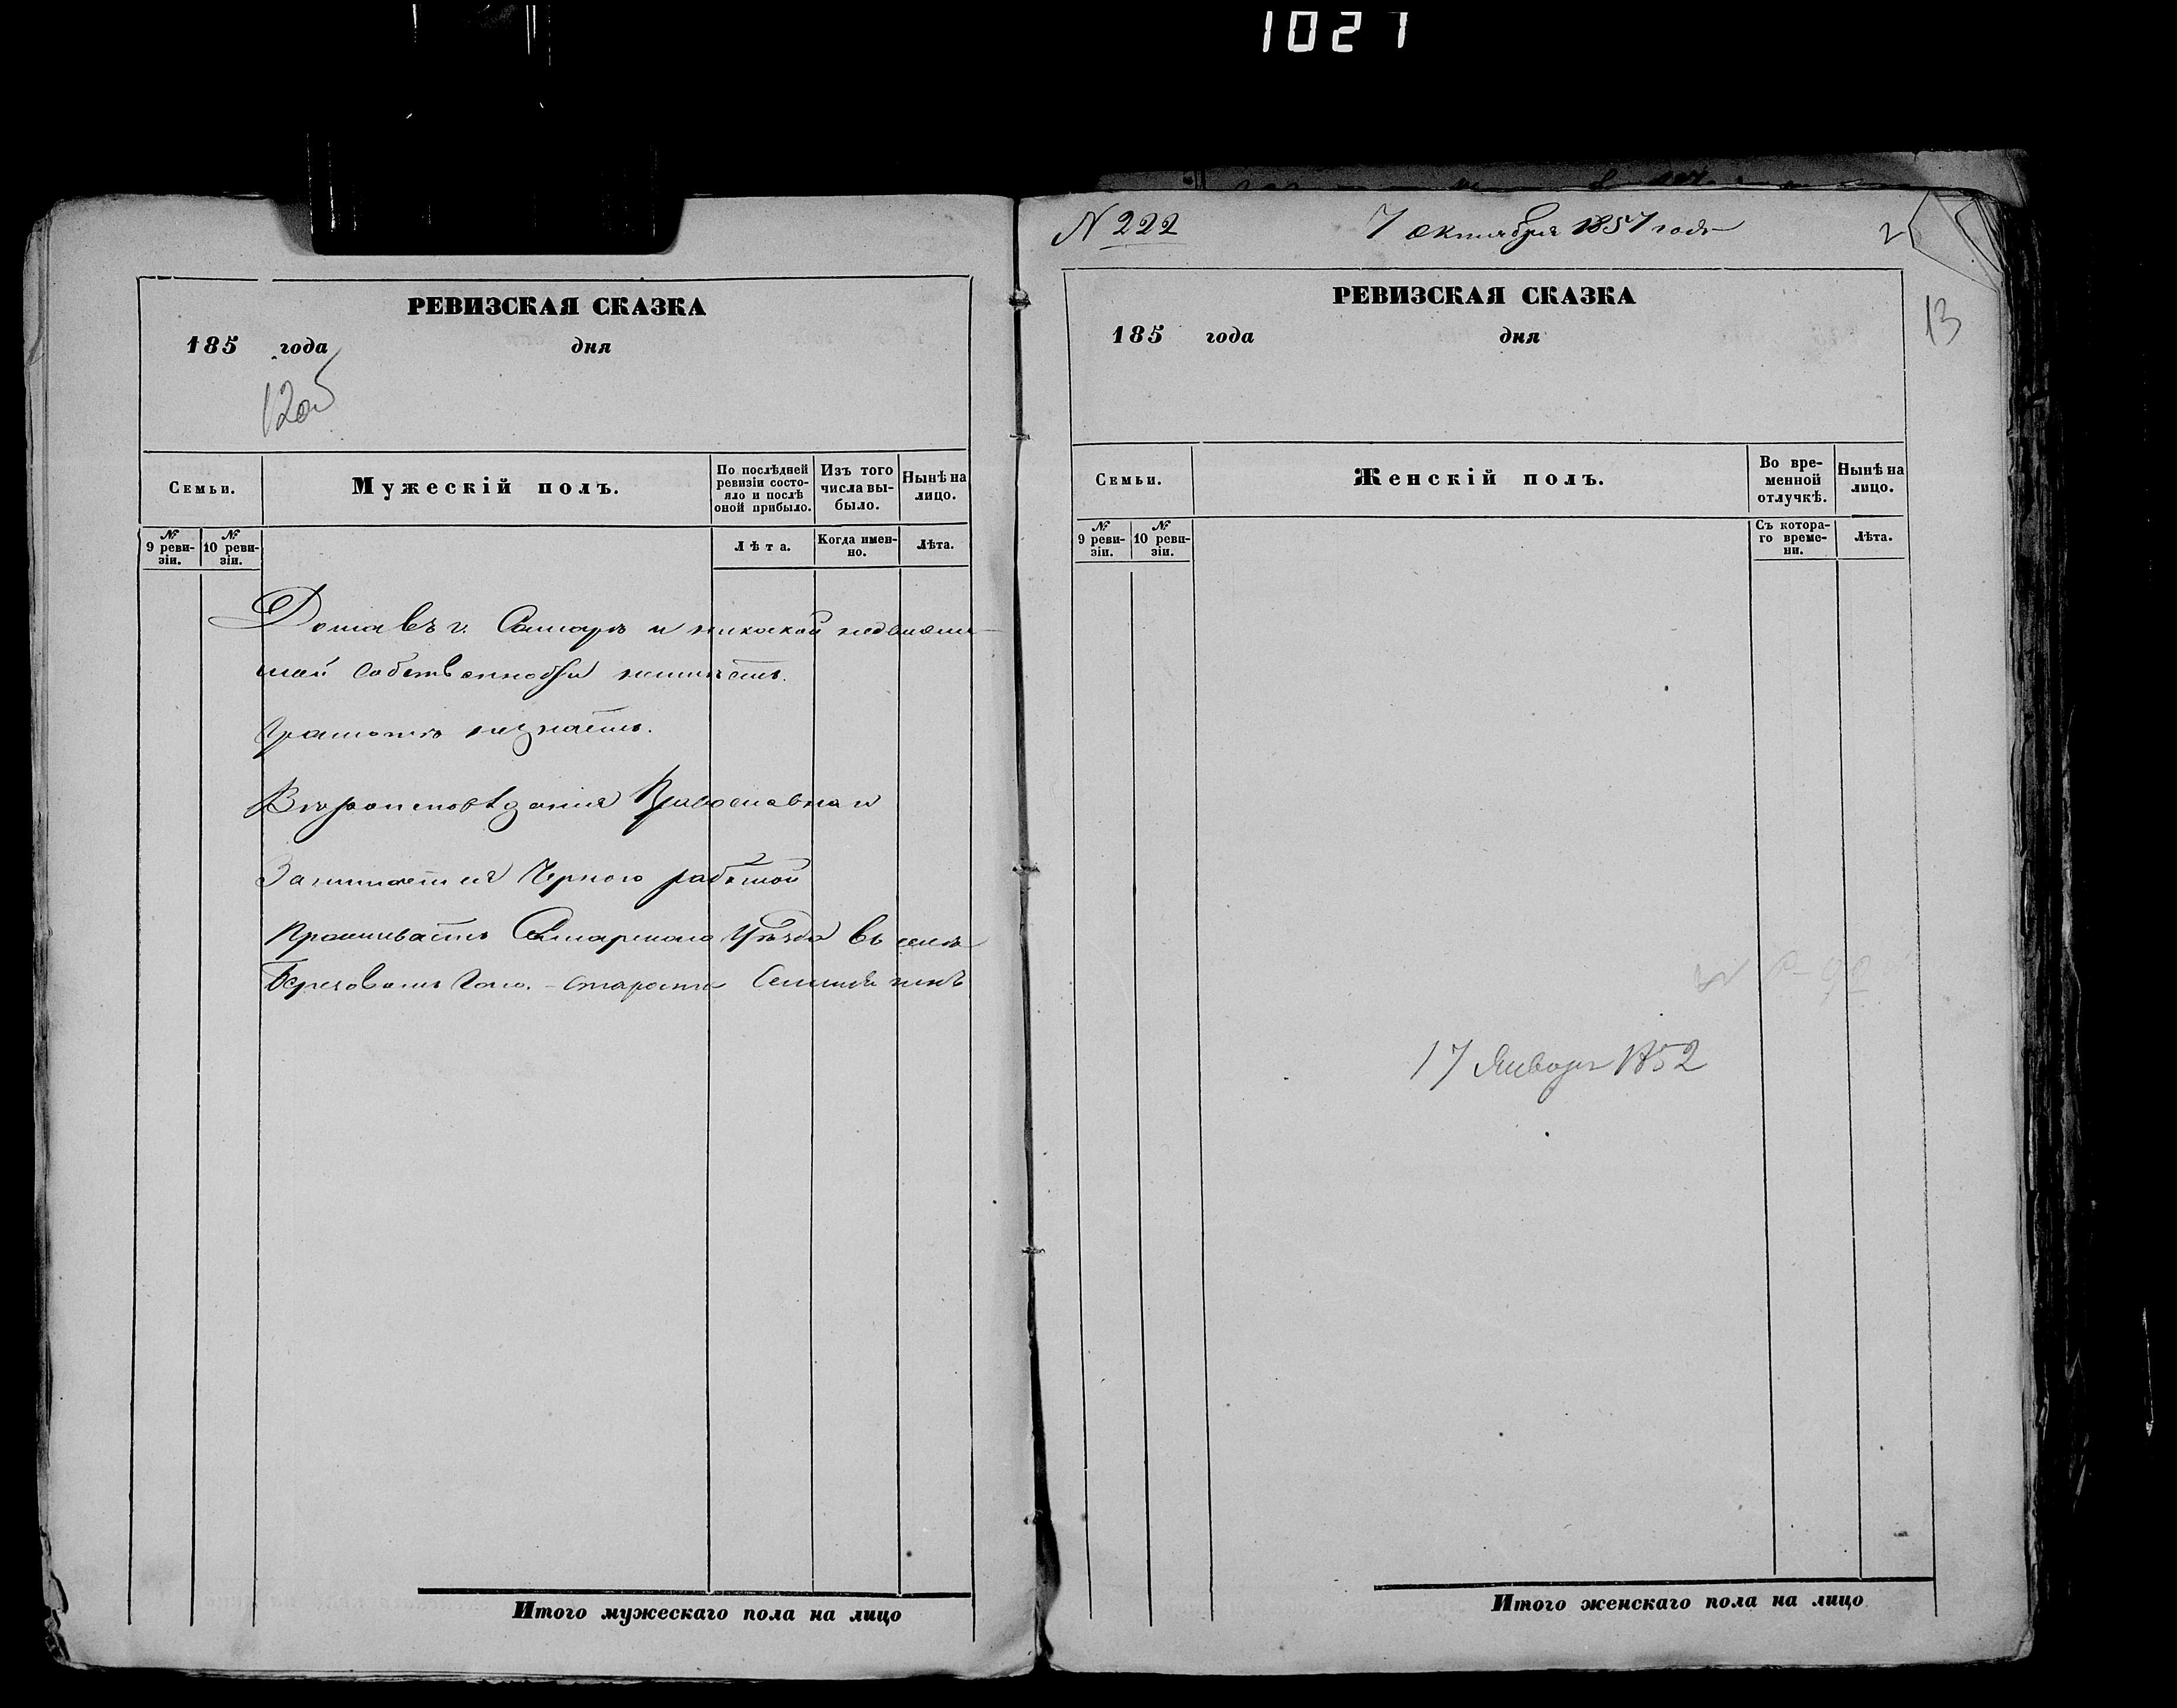 1021
РЕВИЗСКАЯ СКАЗКА
185 года дня
12об
Семьи.
Мужескій полъ.
По послѣдней ревизіи состо-
яло и послѣ оной прибыло.
Изъ того числа вы-
было.
Нынѣ на лицо.
№ 9 реви-
зіи.
№ 10 реви-
зіи.
Лѣта.
Когда имен-
но.
Лѣта.
Дома въ г. Самарѣ и никакой недвижи-
мой собственности неимѣетъ.
Грамотѣ незнаетъ.
Вѣроисповѣданія Православнаго
Занимается Черною работой
Проживаетъ Самарскаго Уѣзда въ селѣ
Березовомъ
Итого мужескаго пола на лицо
N 222
7 Октября 1857 года
13
РЕВИЗСКАЯ СКАЗКА
185 года дня
Семьи.
Женскій полъ.
Во вре-
менной
отлучкѣ.
Нынѣ на
лицо.
№ 9 реви-
зіи.
№ 10 реви-
зіи.
Съ котора-
го време-
ни.
Лѣта.
17 Января 1852
Итого женскаго пола на лицо